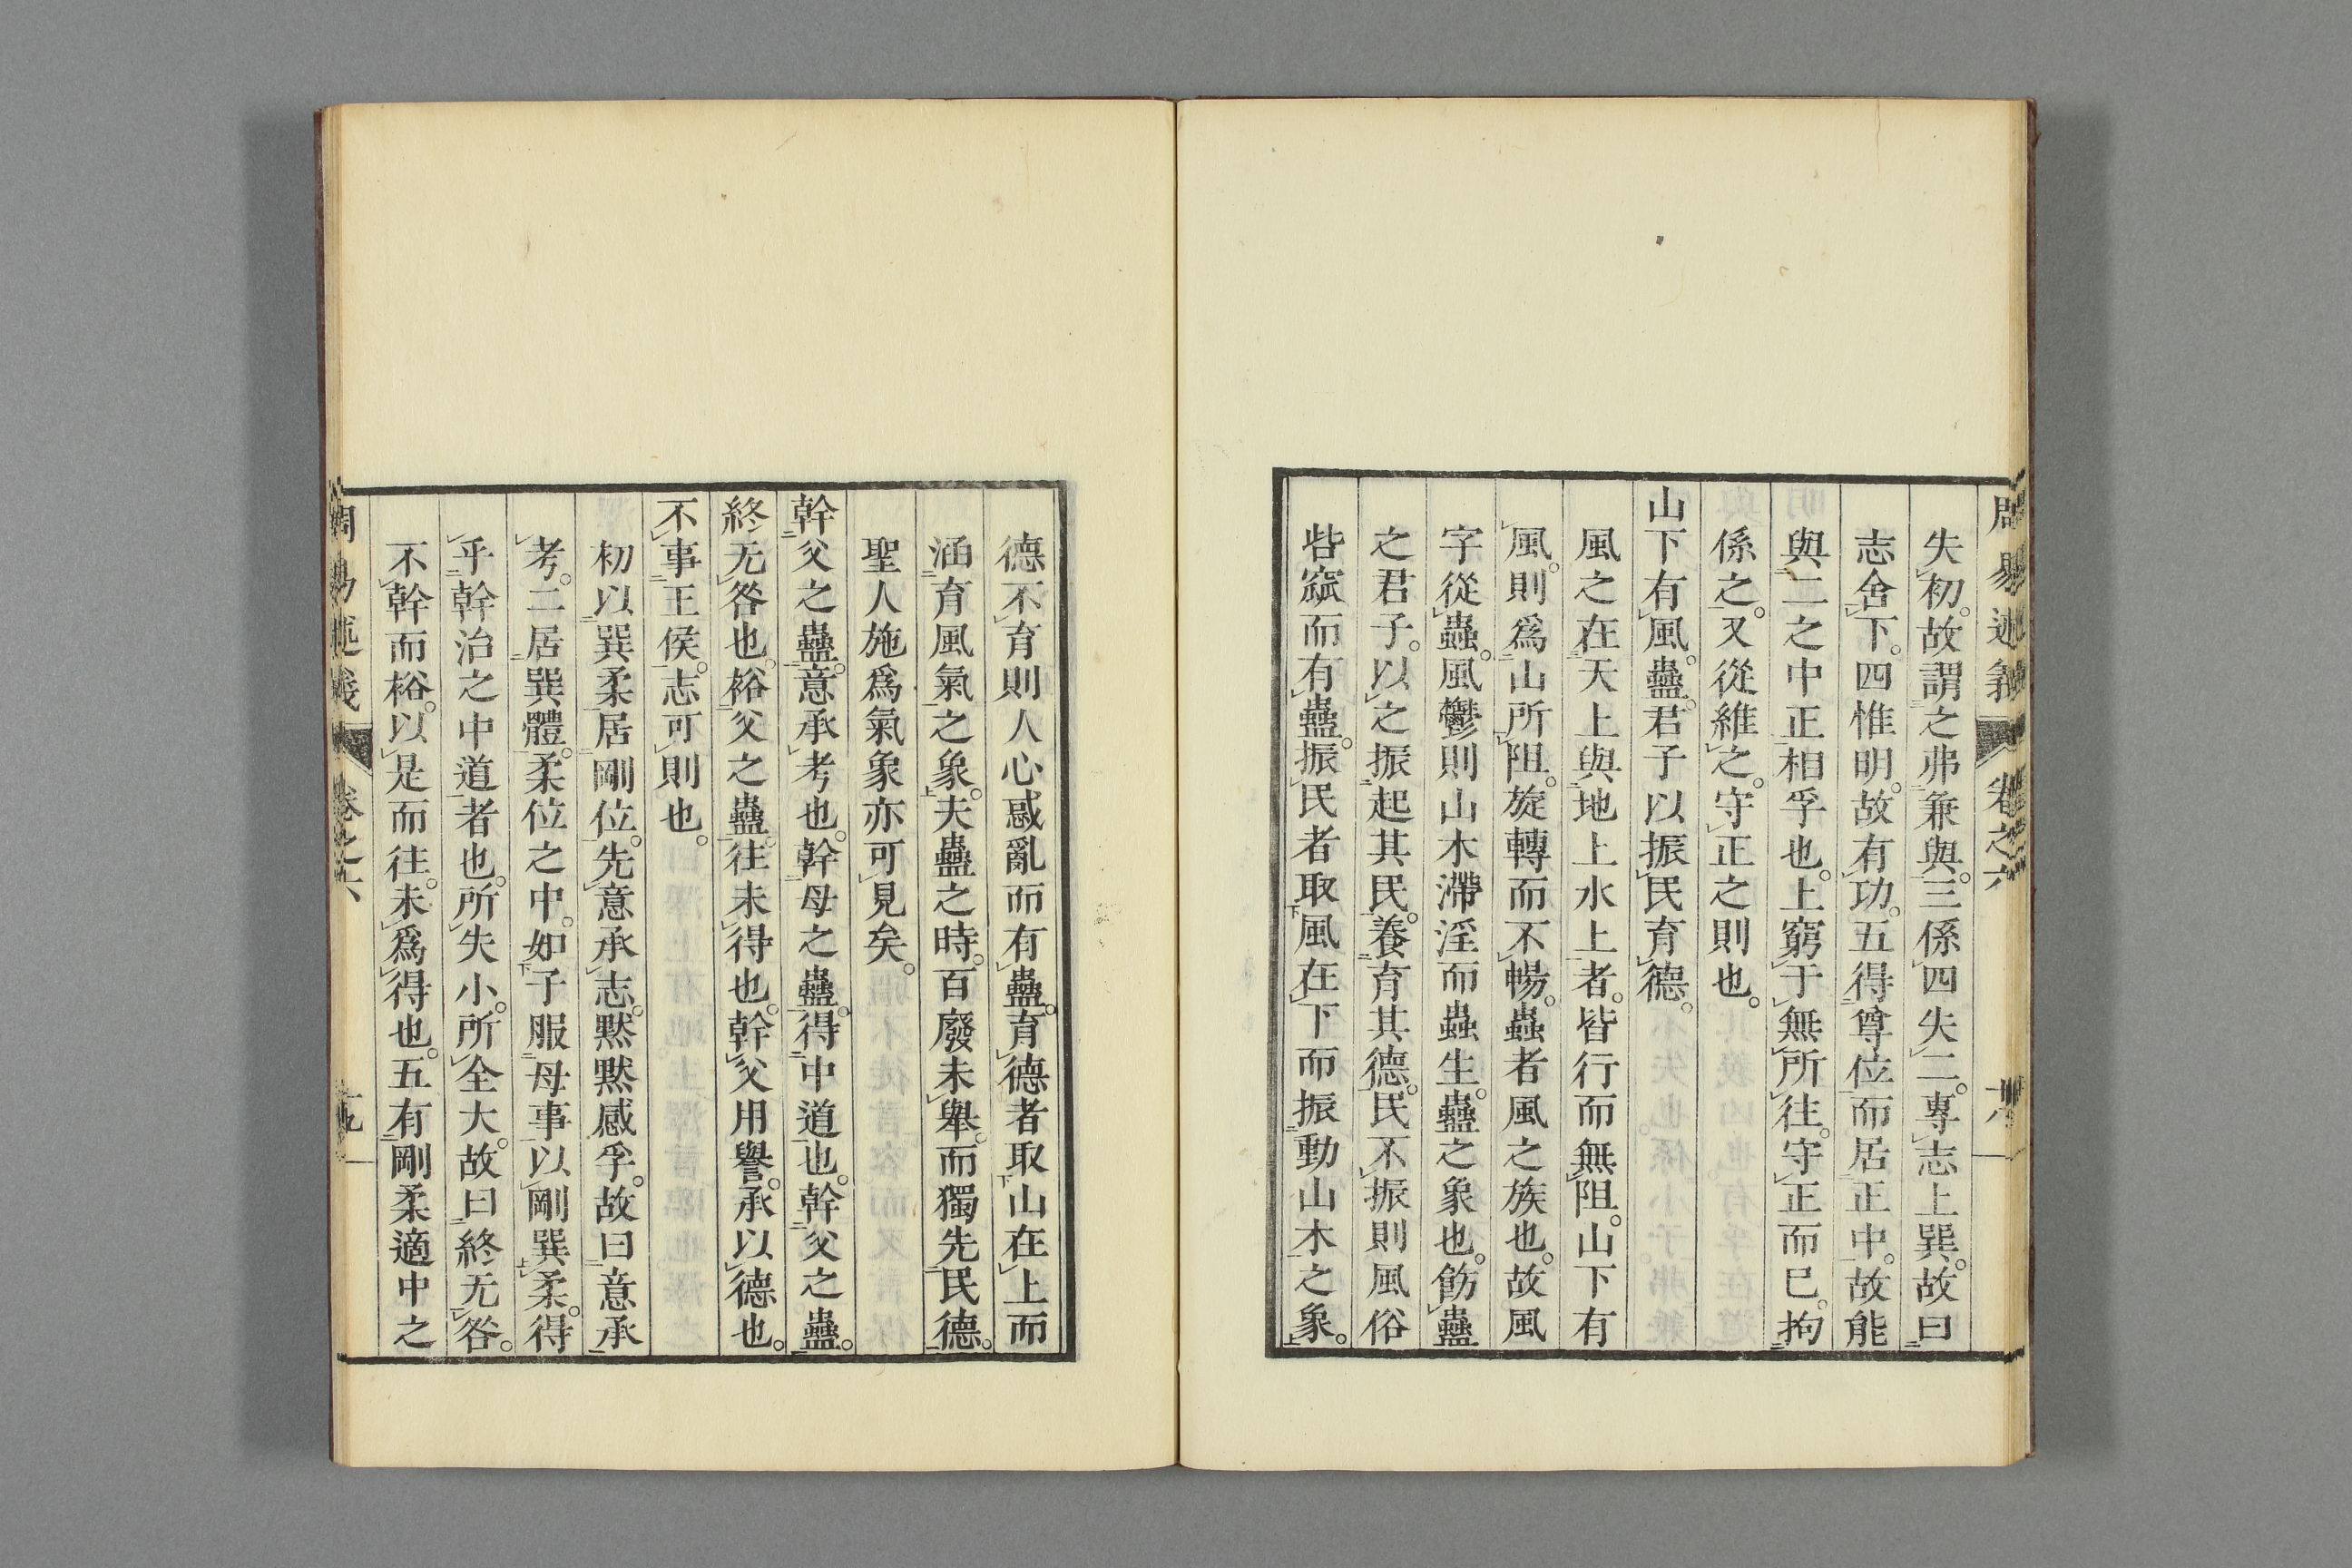 周易述義 卷之六
失初。故謂之弗兼與。三係四失二。專志上巽。故曰
志舍下。四惟明。故有功。五得尊位而居正中。故能
與二之中正相孚也。上窮于無所往。守正而已。拘
係之。又從維之。守正之則也。
山下有風。蠱。君子以振民育德。
風之在天上與地上水上者。皆行而無阻。山下有
風。則爲山所阻。旋轉而不暢。蟲者風之族也。故風
字從蟲。風鬱則山木滯淫而蟲生。蠱之象也。飭蠱
之君子。以之振起其民。養育其德。民不振則風俗
呰窳而有蠱。振民者取風在下而振動山木之象。
德不育則人心惑亂而有蠱。育德者取山在上而
涵育風氣之象。夫蠱之時。百廢未舉。而獨先民德。
聖人施爲氣象亦可見矣。
幹父之蠱。意承考也。幹母之蠱。得中道也。幹父之蠱。
終无咎也。裕父之蠱。往未得也。幹父用譽。承以德也。
不事王侯。志可則也。
初以巽柔居剛位。先意承志。黙黙感孚。故曰意承
考。二居巽體。柔位之中。如子服母事以剛巽柔。得
乎幹治之中道者也。所失小。所全大。故曰終无咎。
不幹而裕。以是而往。未爲得也。五有剛柔適中之
周易述義 卷之六